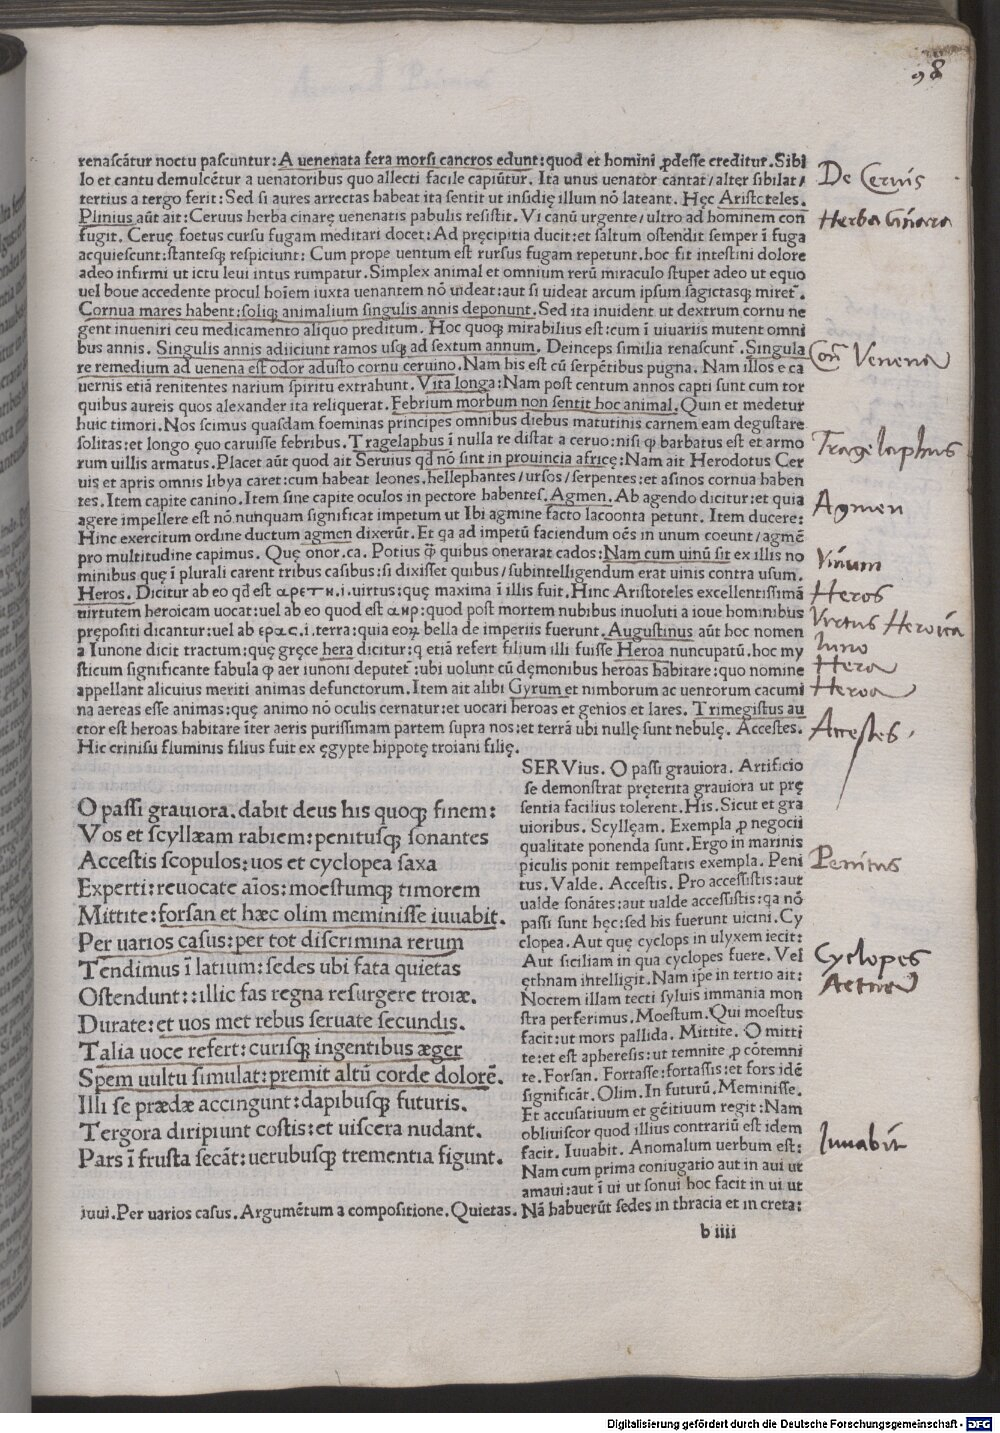 98
renascātur noctu pascuntur: A uenenata fera morsi cancros edunt: quod et homini ꝓdesse creditur. Sibi
lo et cantu demulcētur a uenatoribus quo allecti facile capiūtur. Ita unus uenator cantat/ alter sibilat/
tertius a tergo ferit: Sed si aures arrectas habeat ita sentit ut insidię illum nō lateant. Hęc Aristoteles.
Plinius aūt ait: Ceruus herba cinarę uenenatis pabulis resistit. Vi canū urgente/ ultro ad hominem con
fugit. Ceruę foetus cursu fugam meditari docet: Ad pręcipitia ducit: et saltum ostendit semper ī fuga
acquiescunt: stantesqȝ respiciunt: Cum prope uentum est rursus fugam repetunt. hoc fit intestini dolore
adeo infirmi ut ictu leui intus rumpatur. Simplex animal et omnium rerū miraculo stupet adeo ut equo
uel boue accedente procul hoīem iuxta uenantem nō uideat: aut si uideat arcum ipsum sagictasqȝ miret᷑.
Cornua mares habent: soliqȝ animalium singulis annis deponunt. Sed ita inuident ut dextrum cornu ne
gent inueniri ceu medicamento aliquo preditum. Hoc quoqȝ mirabilius est: cum ī uiuariis mutent omni
bus annis. Singulis annis adiiciunt ramos usqȝ ad sextum annum. Deinceps similia renascunt᷑. Singula
re remedium ad uenena est odor adusto cornu ceruino. Nam his est cū serpētibus pugna. Nam illos e ca
uernis etiā renitentes narium spiritu extrahunt. Vita longa: Nam post centum annos capti sunt cum tor
quibus aureis quos alexander ita reliquerat. Febrium morbum non sentit hoc animal. Quin et medetur
huic timori. Nos scimus quasdam foeminas principes omnibus diebus matutinis carnem eam degustare
solitas: et longo ęuo caruisse febribus. Tragelaphus ī nulla re distat a ceruo: nisi ꝙ barbatus est et armo
rum uillis armatus. Placet aūt quod ait Seruius qd̄ nō sint in prouincia africę: Nam ait Herodotus Cer
uis et apris omnis libya caret: cum habeat leones. hellephantes/ ursos/ serpentes: et asinos cornua haben
tes. Item capite canino. Item sine capite oculos in pectore habentes. Agmen. Ab agendo dicitur: et quia
agere impellere est nō nunquam significat impetum ut Ibi agmine facto lacoonta petunt. Item ducere:
Hinc exercitum ordine ductum agmen dixerūt. Et qa ad impetū faciendum oēs in unum coeunt/ agmē
pro multitudine capimus. Quę onor. ca. Potius ꝙ̄ quibus onerarat cados: Nam cum uinū sit ex illis no
minibus quę ī plurali carent tribus casibus: si dixisset quibus/ subintelligendum erat uinis contra usum.
Heros. Dicitur ab eo qd̄ est αρετη. i. uirtus: quę maxima ī illis fuit. Hinc Aristoteles excellentissimā
uirtutem heroicam uocat: uel ab eo quod est ανρ: quod post mortem nubibus inuoluti a ioue hominibus
prępositi dicantur: uel ab ερας. i. terra: quia eoꝝ bella de imperiis fuerunt. Augustinus aūt hoc nomen
a Iunone dicit tractum: quę gręce hera dicitur: q etiā refert filium illi fuisse Heroa nuncupatū. hoc my
sticum significante fabula ꝙ aer iunoni deputet᷑: ubi uolunt cū dęmonibus heroas habitare: quo nomine
appellant alicuius meriti animas defunctorum. Item ait alibi Gyrum et nimborum ac uentorum cacumi
na aereas esse animas: quę animo nō oculis cernatur: et uocari heroas et genios et lares. Trimegistus au
ctor est heroas habitare īter aeris purissimam partem supra nos: et terrā ubi nullę sunt nebulę. Accestes.
Hic crinisii fluminis filius fuit ex ęgypte hippotę troiani filię.
De Cervis
Herba Cinara
Con̄ Venena
Tragelaphus
Agmen
Vinum
Heros
Virtus Heroica
Iuno
Hera
Heroa
Accestes.
O passi grauiora. dabit deus his quoqȝ finem:
Vos et scyllæam rabiem: penitusqȝ sonantes
Accestis scopulos: uos et cyclopea saxa
Experti: reuocate aīos: moestumqȝ timorem
Mittite: forsan et hæc olim meminisse iuuabit.
Per uarios casus: per tot discrimina rerum
Tendimus ī latium: sedes ubi fata quietas
Ostendunt:: illic fas regna resurgere troiæ.
Durate: et uos met rebus seruate secundis.
Talia uoce refert: curisqȝ ingentibus æger
Spem uultu simulat: premit altū corde dolorē.
Illi se prædæ accingunt: dapibusqȝ futuris.
Tergora diripiunt costis: et uiscera nudant.
Pars ī frusta secāt: uerubusqȝ trementia figunt.
SERVius. O passi grauiora. Artificio
se demonstrat pręterita grauiora ut prę
sentia facilius tolerent. His. Sicut et gra
uioribus. Scyllęam. Exempla ꝓ negocii
qualitate ponenda sunt. Ergo in marinis
piculis ponit tempestatis exempla. Peni
tus. Valde. Accestis. Pro accessistis: aut
ualde sonātes: aut ualde accessistis: qa nō
passi sunt hęc: sed his fuerunt uicini. Cy
clopea. Aut quę cyclops in ulyxem iecit:
Aut siciliam in qua cyclopes fuere. Vel
ęthnam intelligit. Nam ipe in tertio ait:
Noctem illam tecti syluis immania mon
stra perferimus. Moestum. Qui moestus
facit: ut mors pallida. Mittite. O mitti
te: et est apheresis: ut temnite ꝓ cōtemni
te. Forsan. Fortasse: fortassis: et fors idē
significāt. Olim. In futurū. Meminisse.
Et accusatiuum et gēitiuum regit: Nam
obliuiscor quod illius contrariū est idem
facit. Iuuabit. Anomalum uerbum est:
Nam cum prima coniugatio aut in aui ut
amaui: aut ī ui ut sonui hoc facit in ui ut
iuui. Per uarios casus. Argumētum a compositione. Quietas. Nā habuerūt sedes in thracia et in creta:
Penitus
Cyclopes
Aetna
Iuuabit
b iiii
Digitalisierung gefördert durch die Deutsche Forschungsgemeinschaft - DFG